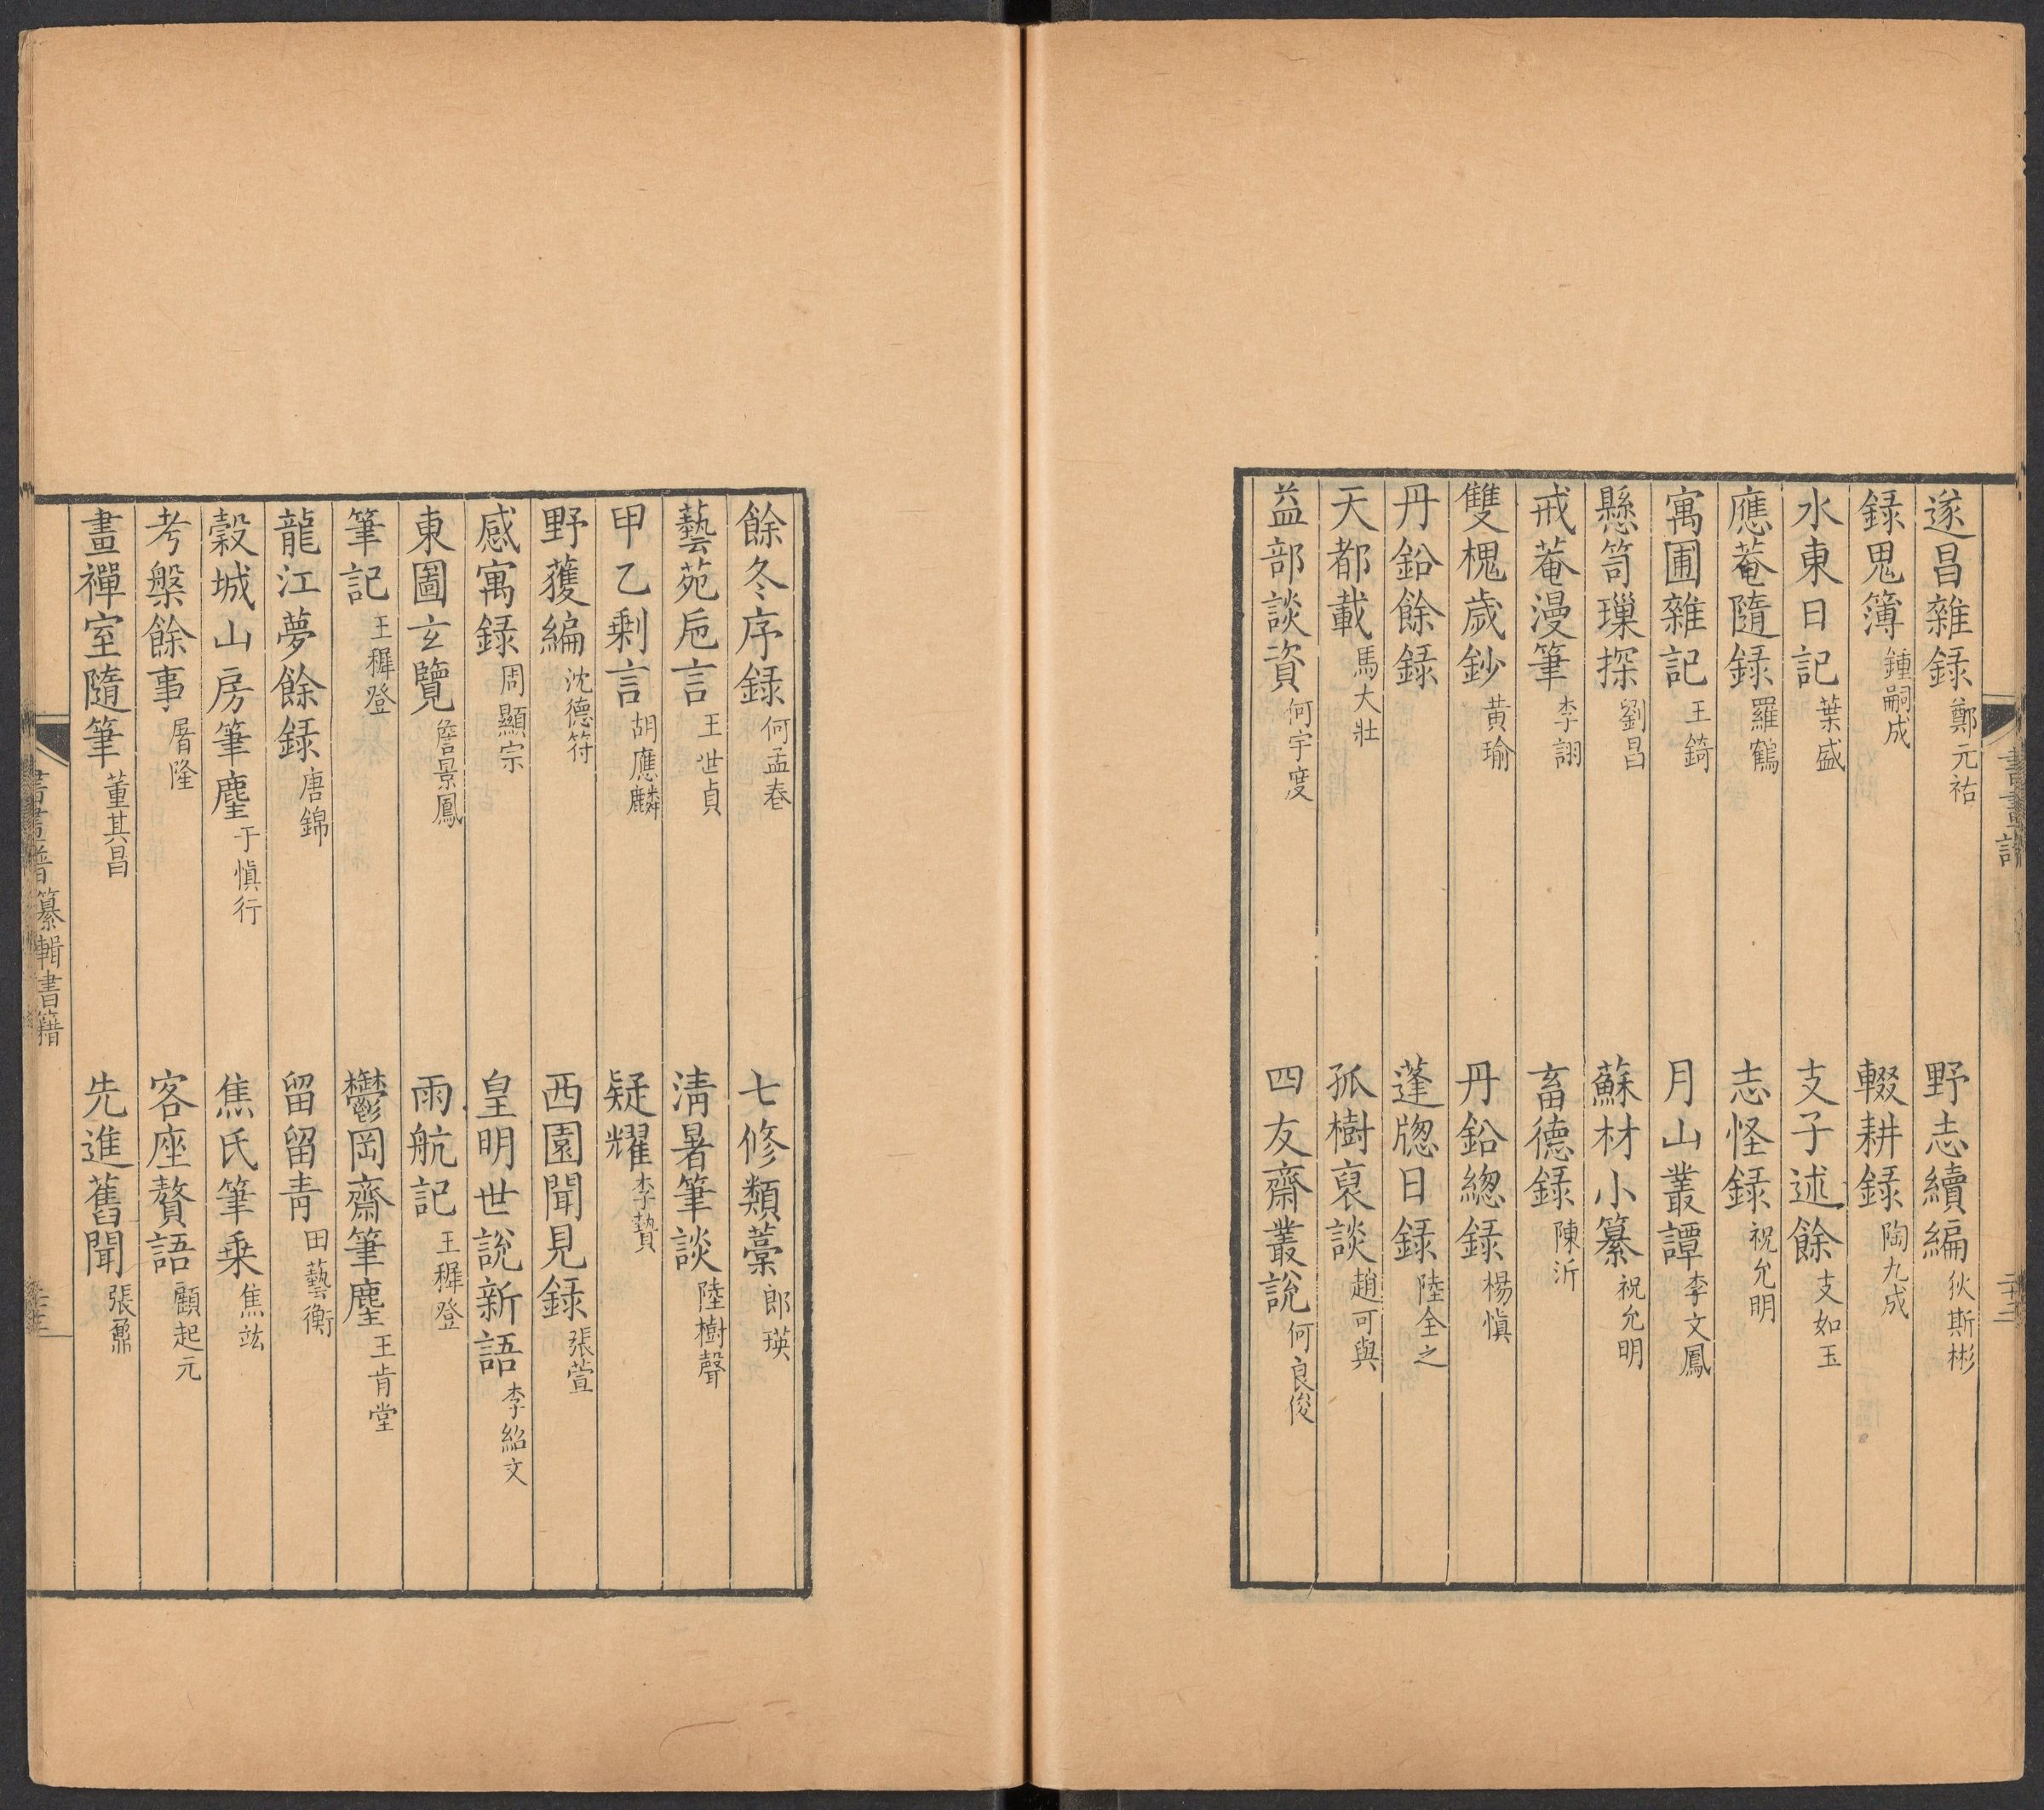 書畫譜
遂昌雜録 鄭元祐 野志續編 狄斯彬
録鬼簿 鍾嗣成 輟耕録 陶九成
水東日記 葉盛 支子述餘 支如玉
應菴隨録 羅鶴 志怪録 祝允明
寓圃雜記 王錡 月山叢譚 李文鳳
懸笥瑣探 劉昌 蘇材小纂 祝允明
戒菴漫筆 李詡 畜德録 陳沂
雙槐歲鈔 黄瑜 丹鉛總録 楊慎
丹鉛餘録 蓬牕日録 陸全之
天都載 馬大壯 孤樹裒談 趙可與
益部談資 何宇度 四友齋叢說 何良俊
餘冬序録 何孟春 七修類藁 郎瑛
藝苑巵言 王世貞 淸暑筆談 陸樹聲
甲乙剩言 胡應麟 疑耀 李贄
野獲編 沈德符 西園聞見録 張萱
感寓録 周顯宗 皇明世說新語 李紹文
東圖玄覽 詹景鳳 雨航記 王穉登
筆記 王穉登 鬱岡齋筆麈 王肯堂
龍江夢餘録 唐錦 留留青 田藝衡
穀城山房筆麈 于慎行 焦氏筆乗 焦竑
考槃餘事 屠隆 客座贅語 顧起元
畫禪室隨筆 董其昌 先進舊聞 張鼐
書畫譜 纂輯書籍